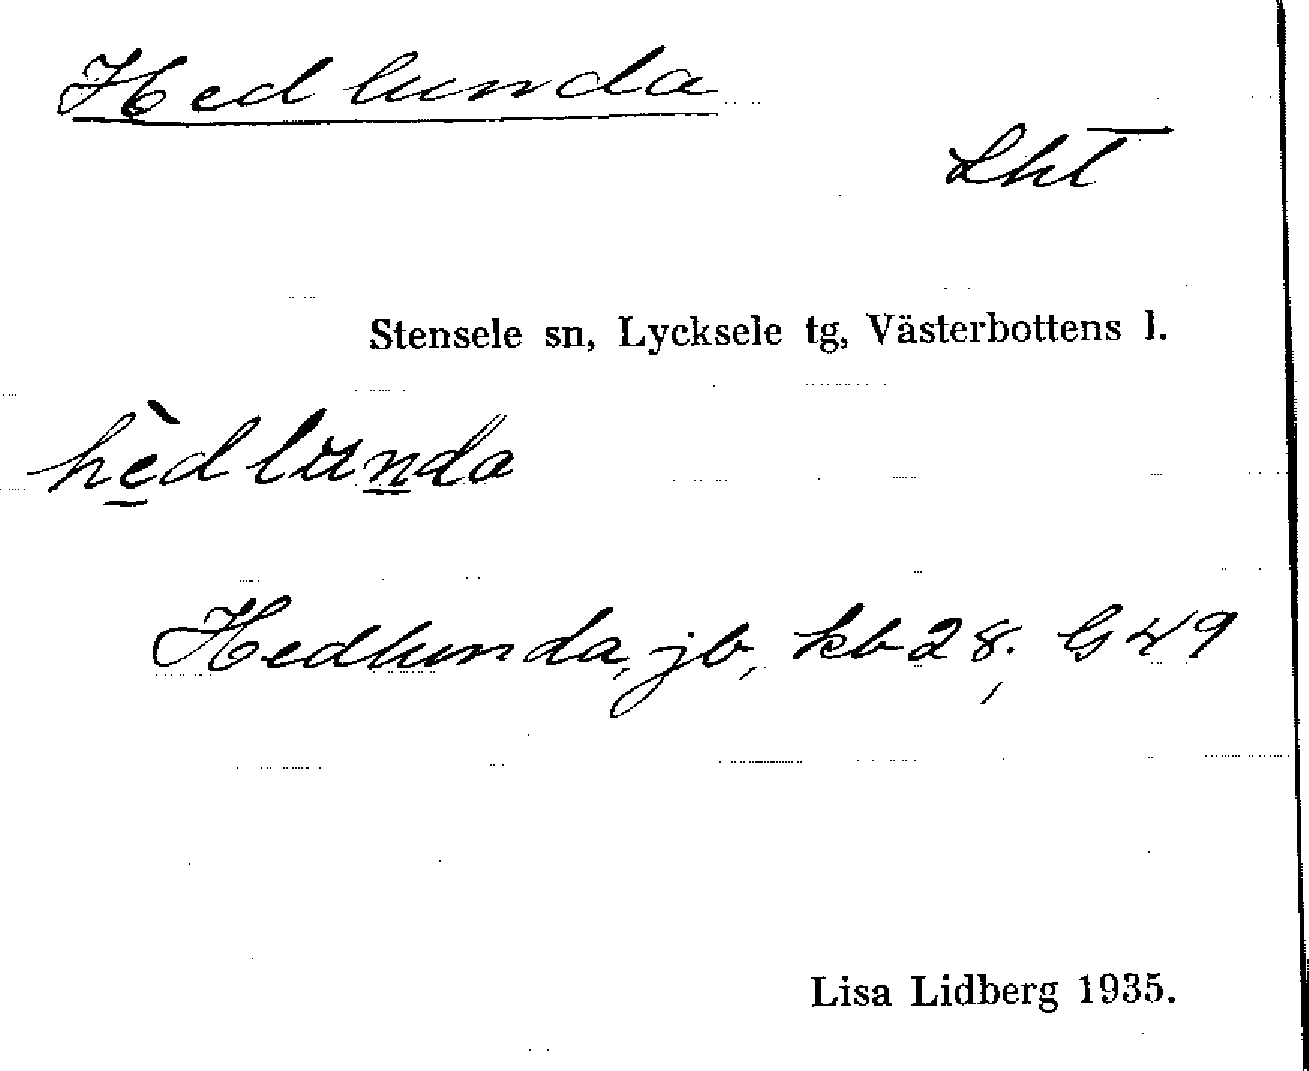 Hedlunda
Lht
Stensele sn, Lycksele tg, Västerbottens l.
hèdlunda
Hedlunda, jb, kb 28. G 49
Lisa Lidberg 1935.